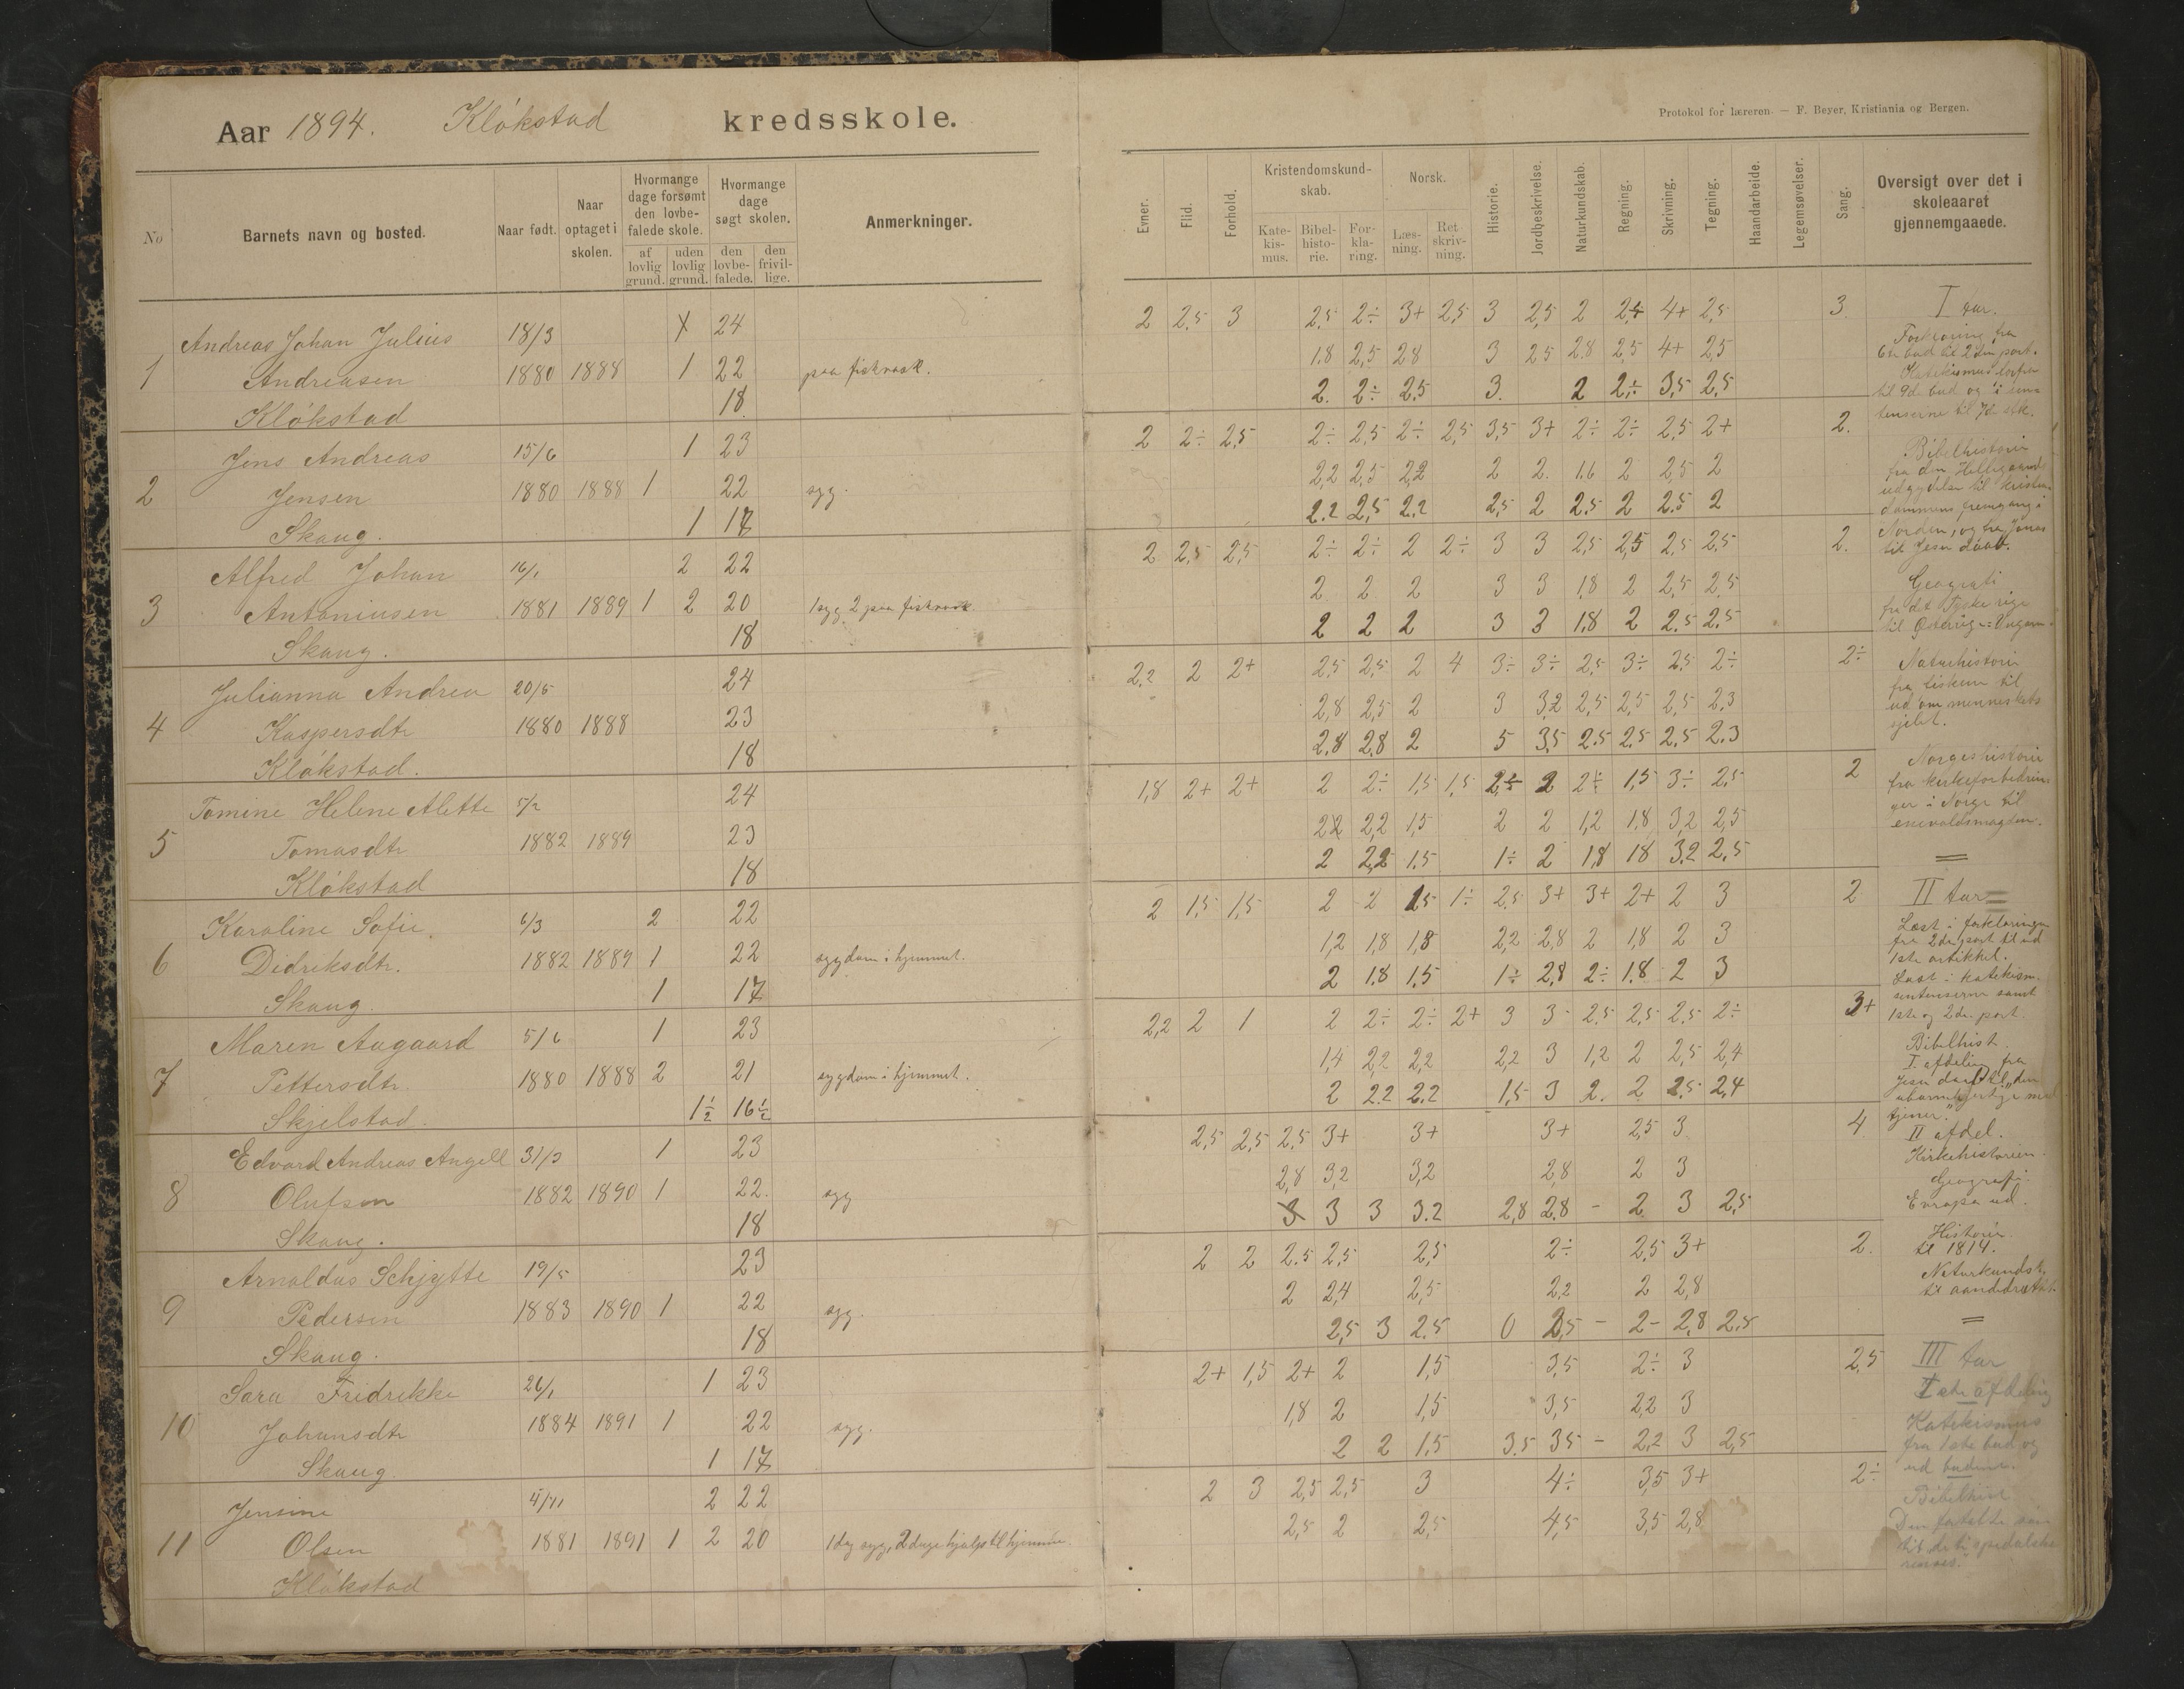 Aar 1894. Klökstad kredsskole.
No
Barnets navn og bosted.
Naar født.
Naar optaget i skolen.
Hvormange dage forsømt den lovbefalede skole.
af lovlig grund.
uden lovlig grund.
Hvormange dage søgt skolen.
den lovbefalede.
den frivillige.
Anmerkninger.
Andreas Johan Julius 18/3 24
1 Andreasen 1880 1888 1 22 paa fiskvask.
Klökstad 18
Jens Andreas 15/6 1 23
2 Jensen 1880 1888 1 22 syg.
Skaug. 1 17
Alfred Johan 16/1 2 22
3 Antoniusen 1881 1889 1 2 20 1 syg 2 paa fiskvask
Skaug. 18
Julianna Andrea 20/5 24
4 Kaspersdtr 1880 1888 23
Klökstad. 18
Tomine Helene Alette 5/2 24
5 Tomasdtr 1882 1889 23
Klökstad 18
Karoline Sofie 6/3 2 22
6 Didriksdtr. 1882 1889 1 22 sygdom i hjemmet.
Skaug. 1 17
Maren Aagaard 5/6 1 23
7 Pettersdtr. 1880 1888 2 21 sygdom i hjemmet.
Skjelstad. 1½ 16½
Edvard Andreas Angell 31/3 1 23
8 Olufsen 1882 1890 1 22. syg
Skaug. 18
Arnoldus Schjytte 19/5 23
9 Pedersen 1883 1890 1 22 syg.
Skaug. 18
Sara Fridrikke 26/1 1 23
10 Johansdtr 1884 1891 1 22 syg.
Skaug 1 17
Jensine 4/11 2 22
11 Olsen 1881 1891 1 2 20 1 dag syg, 2 dage hjælp til hjemme.
Klökstad
Protokol for læreren. — F. Beyer, Kristiania og Bergen.
Evner.
Flid.
Forhold.
Kristendomskundskab.
Katekismus.
Bibelhistorie.
Forklaring.
Norsk.
Læsning.
Retskrivning.
Historie.
Jordbeskrivelse.
Naturkundskab.
Regning.
Skrivning.
Tegning.
Haandarbeide.
Legemsøvelser.
Sang.
Oversigt over det i skoleaaret gjennemgaaede.
2 2,5 3 2,5 2÷ 3+ 2,5 3 2,5 2 2÷ 4+ 2,5 3
1,8 2,5 2,8 3 2,5 2,8 2,5 4+ 2,5
2. 2÷ 2,5 3. 2 2÷ 3,5 2,5
2 2÷ 2,5 2÷ 2,5 2÷ 2,5 3,5 3+ 2÷ 2÷ 2,5 2+ 2.
2,2 2,5 2,2 2 2. 1.6 2 2,5 2
2.2 2,5 2.2 2,5 2 2.5 2 2.5 2
2 2,5 2,5 2÷ 2÷ 2 2÷ 3 3 2,5 2,5 2,5 2,5 2.
2 2 2 3 3 1,8 2 2,5 2,5
2 2 2 3 3 1,8 2 2.5 2.5
2,2 2 2+ 2,5 2,5 2 4 3÷ 3÷ 2,5 3÷ 2,5 2÷ 2÷
2,8 2,5 2 3 3,2 2,5 2,5 2,5 2,3
2,8 2,8 2 5 3,5 2.5 2.5 2,5 2.3
1,8 2+ 2+ 2 2÷ 1,5 1,5 2÷ 2 2÷ 1,5 3÷ 2,5 2
2,2 2,2 1,5 2 2 1,2 1,8 3,2 2,5
2 2,2 1,5 1÷ 2 1,8 1,8 3,2 2,5
2 1,5 1,5 2 2 1,5 1÷ 2,5 3+ 3+ 2+ 2 3 2
1,2 1,8 1,8 2,2 2,8 2 1,8 2 3
2 1,8 1,5 1÷ 2,8 2÷ 1.8 2 3
2,2 2 1 2 2÷ 2÷ 2+ 3 3- 2.5 2,5 2,5 2÷ 3+
1,4 2,2 2,2 2,2 3 1,2 2 2,5 2,4
2 2.2 2.2 1,5 3 2. 2 2.5 2,4
2,5 2,5 2,5 3+ 3+ 3+ 2,5 3 4
2,8 3,2 3,2 2,8 2 3
3 3 3 3.2 2,8 2.8 - 2 3 2,5
2 2 2.5 2,5 2,5 2÷ 2,5 3+ 2.
2 2,4 2,5 2,2 2 2,8
2,5 3 2.5 0 2,5 - 2- 2,8 2.5
2+ 1,5 2+ 2 1,5 3,5 2÷ 3 2,5
1,8 2 1,5 3,5 2,2 3
2 2 1,5 3.5 3.5 - 2,2 3 2,5
2 3 2,5 2,5 3 4÷ 3,5 3+ 2÷
2,5 2 2,5 4,5 3,5 2,8
I aar.
Forklaring fra
6te bud til 2den part.
til 9de bud og i sen-
tenserne til 7de stk.
Bibelhistorie
fra den Helligaands
udgydelse til kristen-
dommens fremgang i
Norden, og fra Jonas
til Jesu daab.
Geografi
fra det Tyske rige
til Østerrig-Ungarn.
Naturhistorie
fra fiskene til
ud om menneskets
sjel.
Norgeshistorie
fra kirkeforbedrin-
gen i Norge til
enevoldsmagten.
II aar
Læst i forklaringen
fra 2den part til ud
1ste artikkel.
Læst i katekism.
sentenserne samt
1ste og 2den part.
Bibelhist.
I afdeling fra
Jesu daab til "den
ubarmhjertige med
tjener."
II afdel.
Kirkehistorien.
Geografi.
Evropa ud.
Historie
til 1814.
Naturkundsk.
til aandedrættet.
III aar
1ste afdeling
Katekismus
fra 1ste bud og
ud budene.
Bibelhist